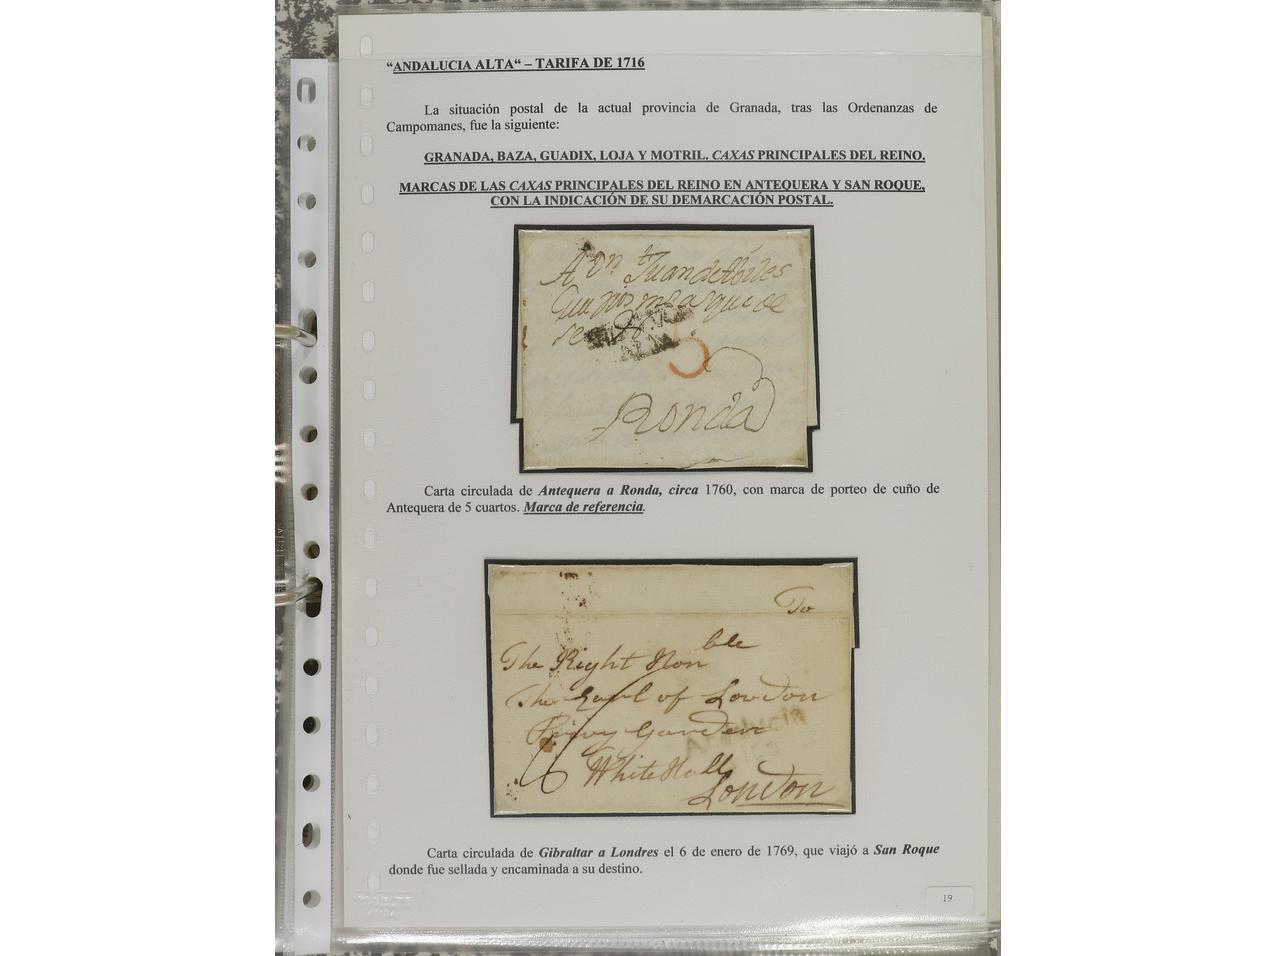 “ANDALUCIA ALTA“ – TARIFA DE 1716
La situación postal de la actual provincia de Granada, tras las Ordenanzas de
Campomanes, fue la siguiente:
GRANADA, BAZA, GUADIX, LOJA Y MOTRIL. CAXAS PRINCIPALES DEL REINO.
MARCAS DE LAS CAXAS PRINCIPALES DEL REINO EN ANTEQUERA Y SAN ROQUE,
CON LA INDICACIÓN DE SU DEMARCACIÓN POSTAL.
A Dn Juan de
5
Ronda
Carta circulada de Antequera a Ronda, circa 1760, con marca de porteo de cuño de
Antequera de 5 cuartos. Marca de referencia.
To
The Right Honble
The Earl of Loudon
Privy Garden
Andalucia
White Hall
London
Carta circulada de Gibraltar a Londres el 6 de enero de 1769, que viajó a San Roque
donde fue sellada y encaminada a su destino.
19